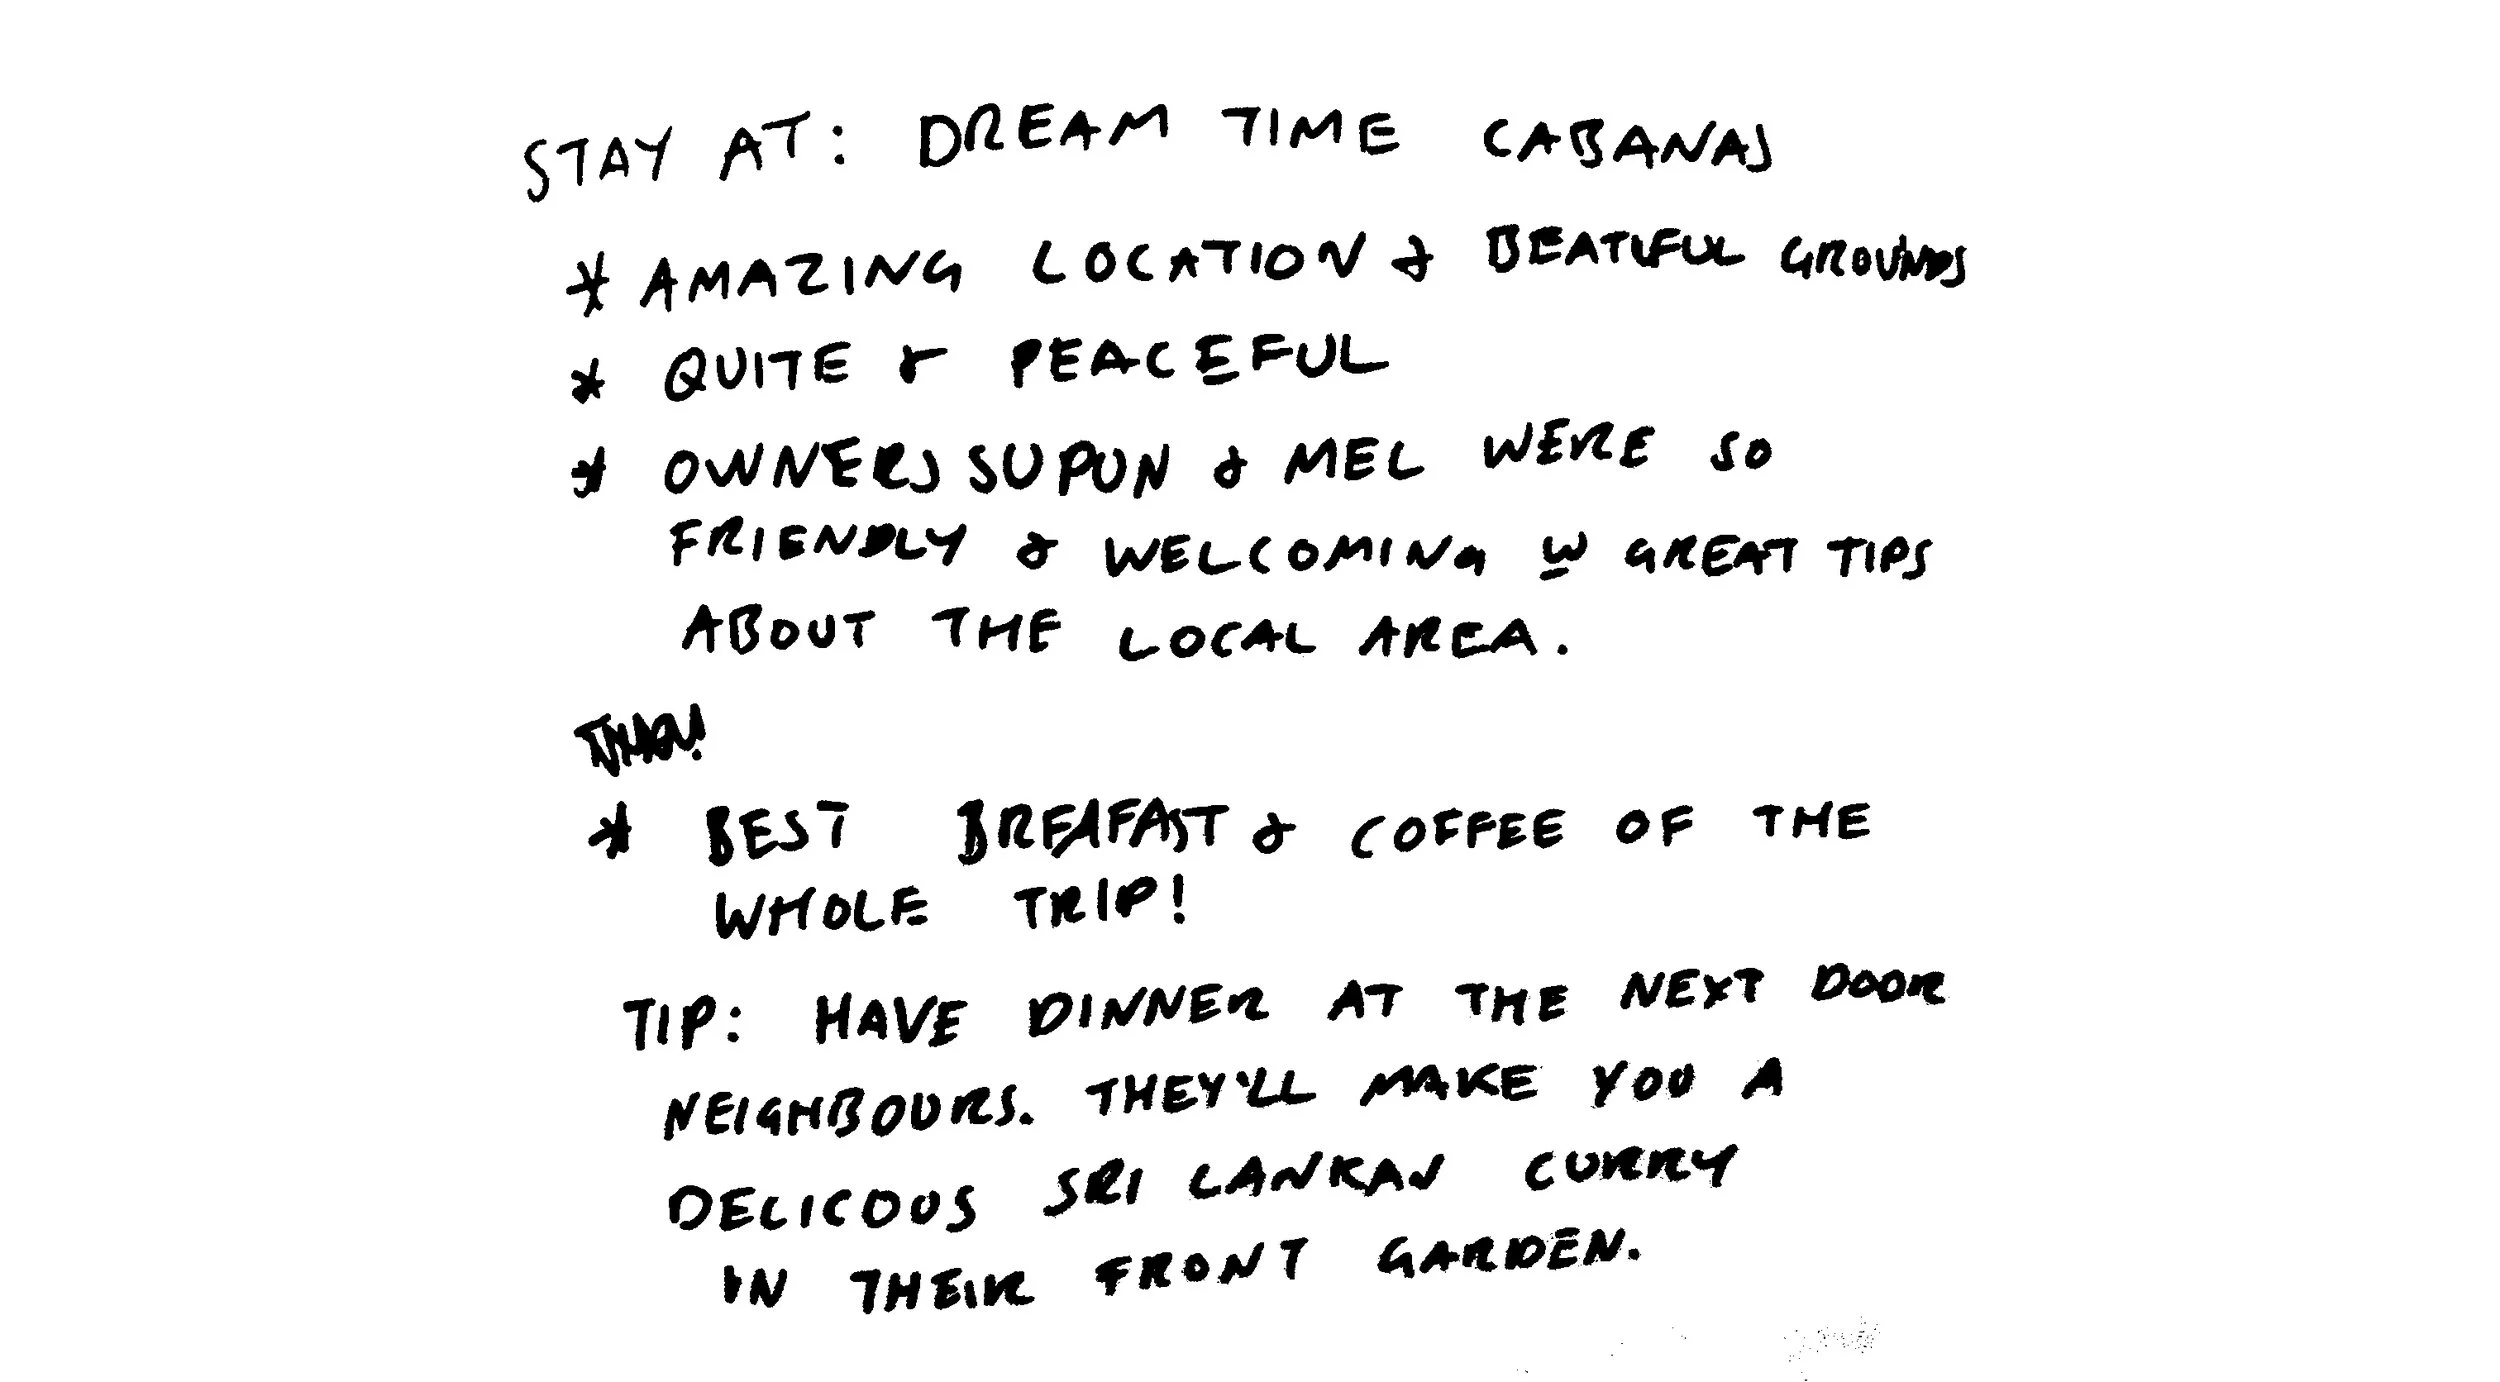 STAY AT: DREAM TIME CABANAS
* AMAZING LOCATION & BEATIFUL GROUNDS
* QUITE & PEACEFUL
* OWNERS SUPUN & MEL WERE SO
FRIENDLY & WELCOMING W GREAT TIPS
ABOUT THE LOCAL AREA.
* BEST BREAFAST & COFFEE OF THE
WHOLE TRIP!
TIP: HAVE DINNER AT THE NEXT DOOR
NEIGHBOURS. THEY'LL MAKE YOU A
DELICOOUS SRI LANKAN CURRY
IN THEIR FRONT GARDEN.